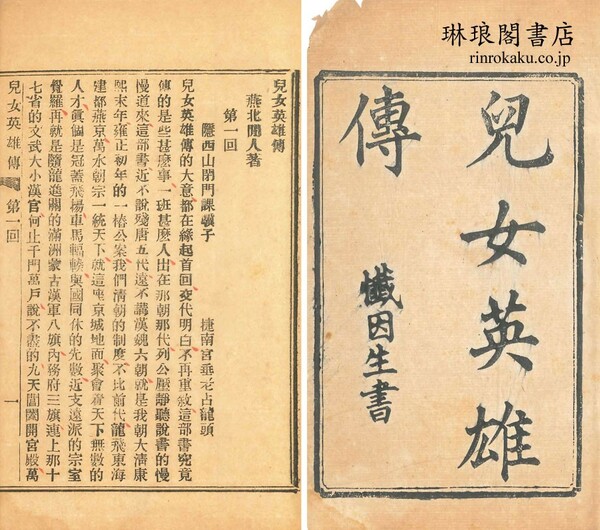 琳琅閣書店
rinrokaku.co.jp
兒女英雄
傳
懺因生書
兒女英雄傳
燕北閒人著
第一回
隱西山閉門課驥子 捷南宮垂老占龍頭
兒女英雄傳的大意都在緣起首回交代明白不再重敘這部書究竟
傳的是些甚麽事一班甚麽人出在那朝那代列公壓靜聽說書的慢
慢道來這部書近不說殘唐五代遠不講漢魏六朝就是我朝大淸康
熙末年雍正初年的一樁公案我們淸朝的制度不比前代龍飛東海
建都燕京萬水朝宗一統天下就這座京城地面聚會着天下無數的
人才眞個是冠蓋飛揚車馬輻輳與國同休的先數近支遠派的宗室
覺羅再就是隨龍進關的滿洲蒙古漢軍八旗內務府三旗連上那十
七省的文武大小漢官何止千門萬戶說不盡的九天閶闔開宮殿萬
兒女英雄傳 第一回 一